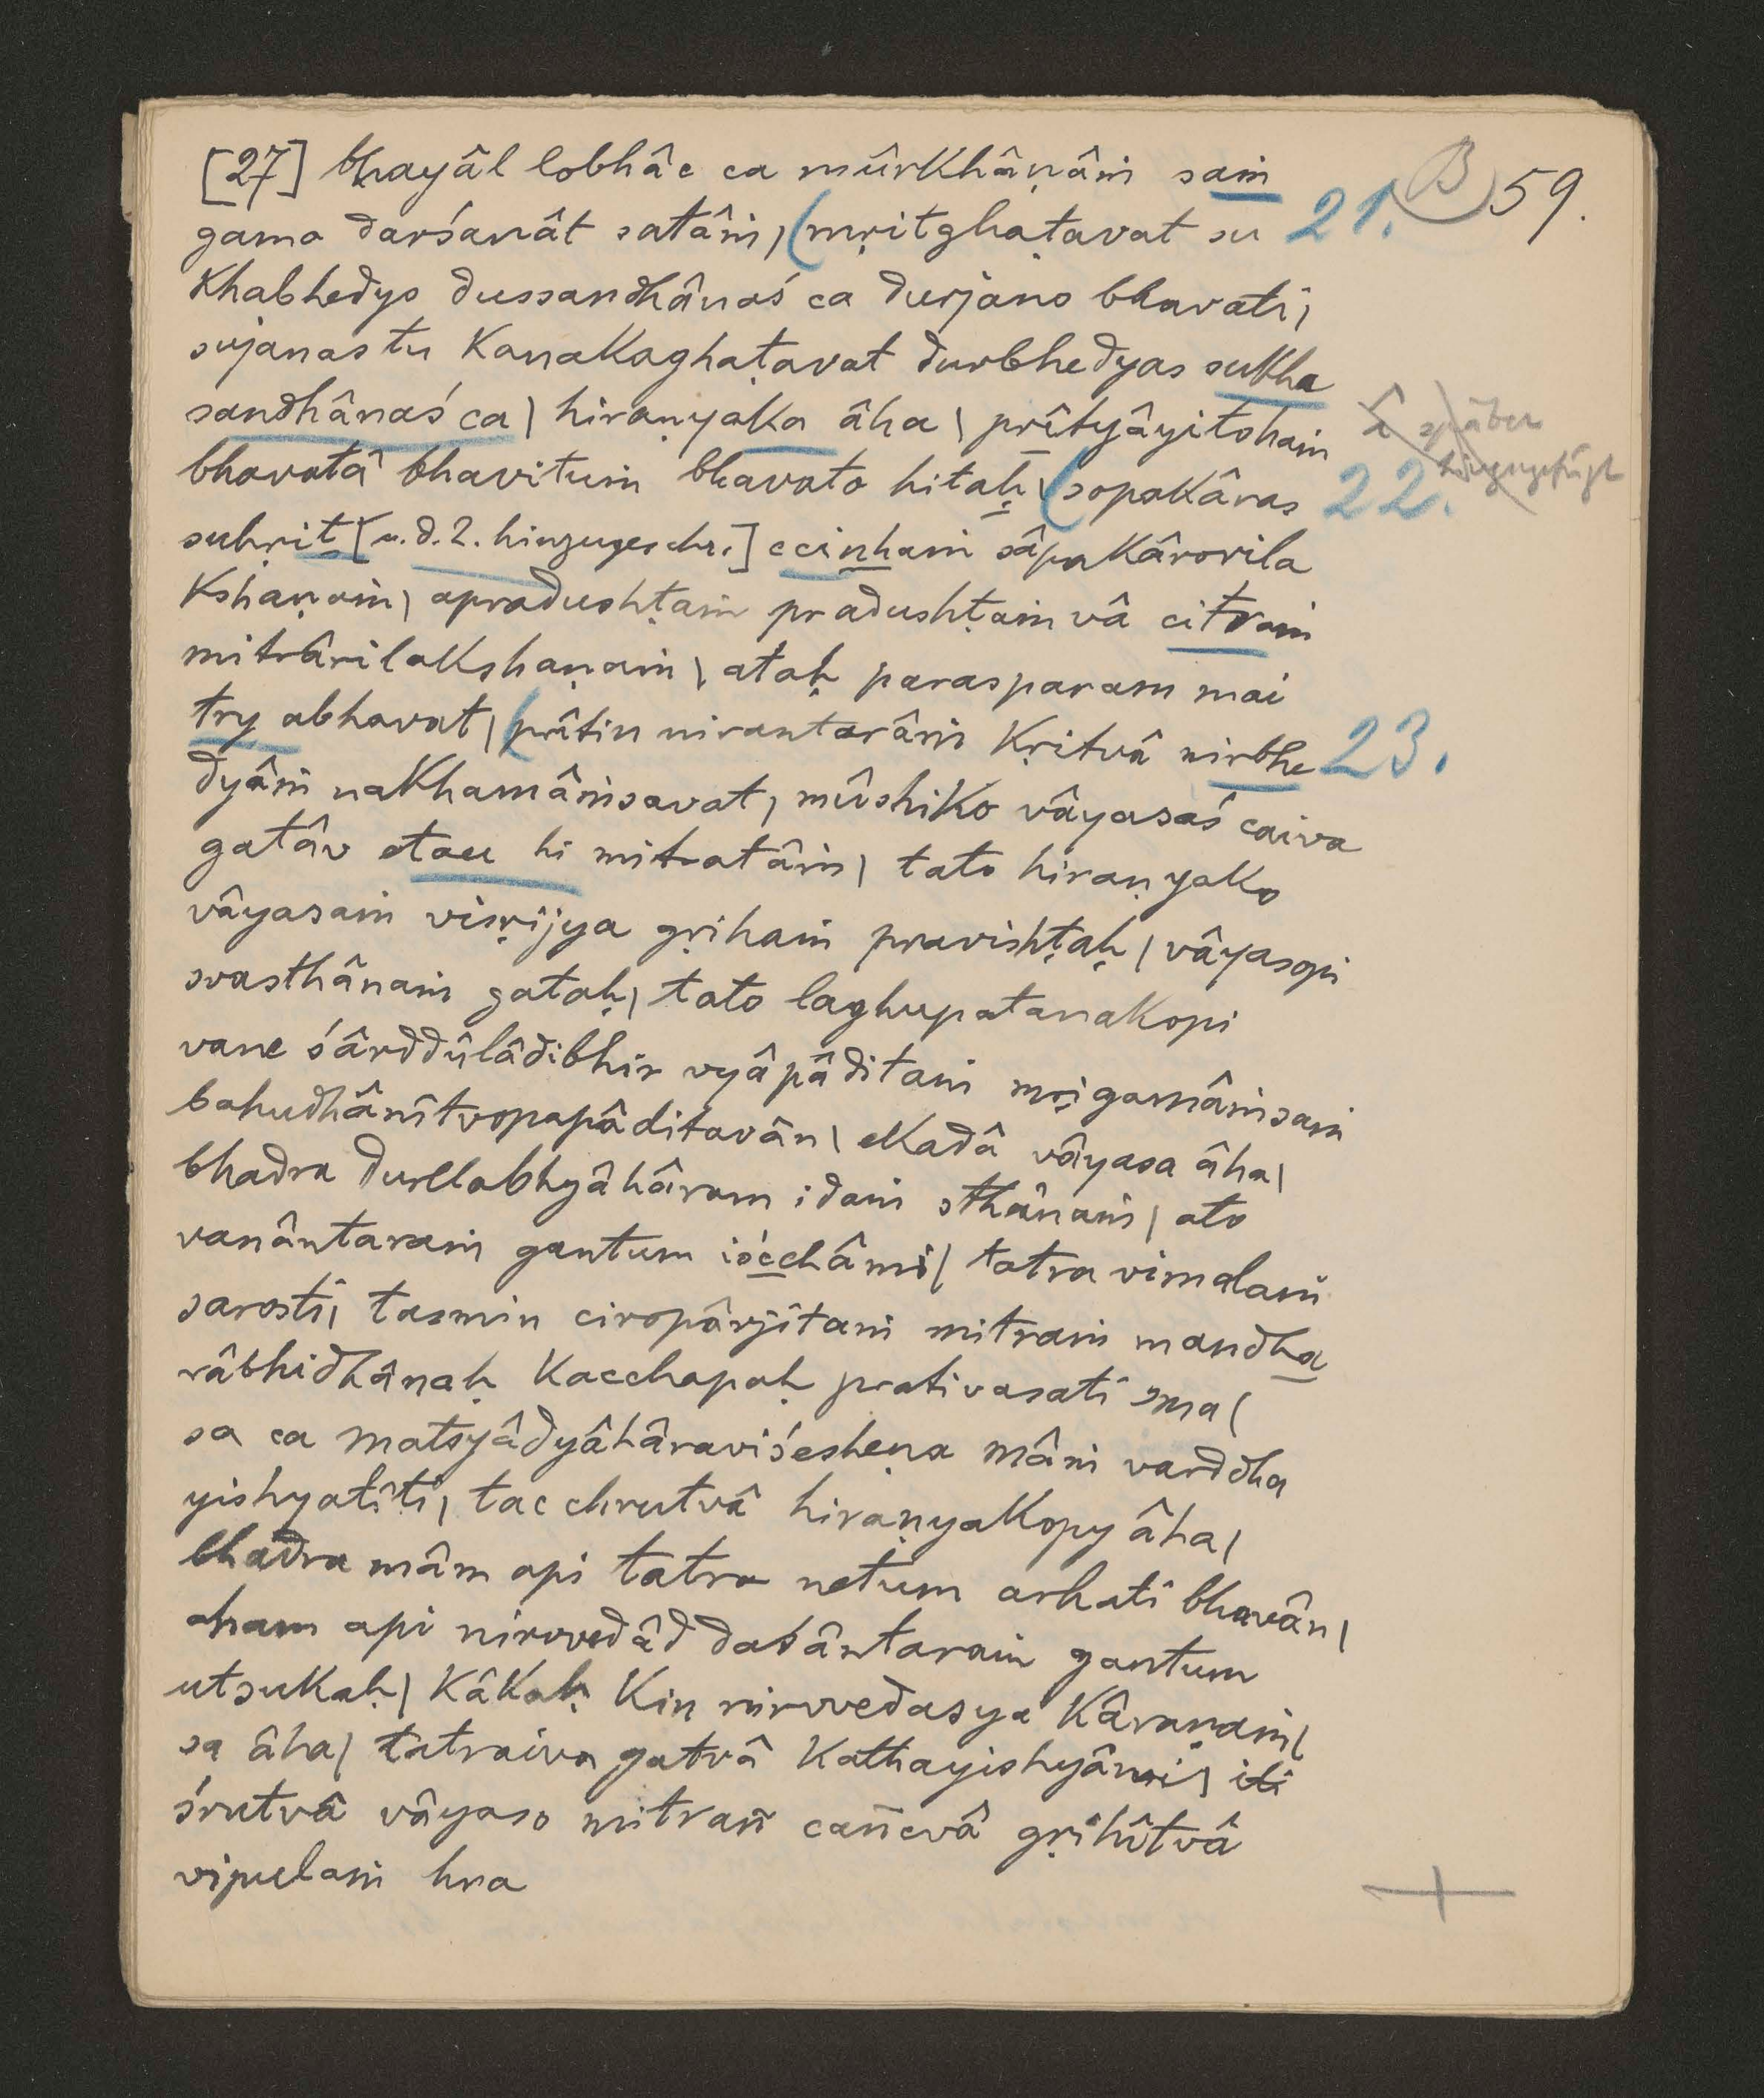 [27] bhayâl lobhâc ca mûrkhâṇâṁ saṁ B 59.
gamo darśanât satâṁ, (mṛitghaṭavat su 21.
khabhedyo dussandhânaś ca durjano bhavati,
sujanas tu kanakaghaṭavat durbhedyas sukha
sandhânaś ca | hiraṇyaka âha | prîtyâyitohaṁ î später
bhavatâ bhavituṁ bhavato hitaḥ | (sopakâras 22. hinzugefügt
suhṛit [u. d. Z. hinzugeschr.] ccinhaṁ sâpakârorila
kshaṇaṁ | apradushṭaṁ pradushṭaṁ vâ citraṁ
mitrârilakshaṇaṁ | ataḥ parasparam mai
try abhavat | (prîtin nirantarâṁ kṛitvâ nirbhe 23.
dyâṁ nakhamâṁsavat, mûshiko vâyasaś caiva
gatâv etau hi mitratâṁ | tato hiraṇyako
vâyasaṁ visṛijya gṛihaṁ pravishṭaḥ | vâyasopi
svasthânaṁ gataḥ | tato laghupatanakopi
vane śârddûlâdibhir vyâpâditaṁ mṛigamâṁsaṁ
bahudhânîtvopapâditavân | ekadâ vâyasa âha |
bhadra durllabhyâhâram idaṁ sthânaṁ | ato
vanântaraṁ gantum iścchâmi | tatra vimalaṁ
sarosti | tasmin ciropârjitaṁ mitraṁ mandha
râbhidhânaḥ kacchapaḥ prativasati sma |
sa ca matsyâdyâhâraviśesheṇa mâṁ varddha
yishyatîti | tac chrutvâ hiraṇyakopy âha |
bhadra mâm api tatra netum arhati bhavân |
aham api nirvvedâd daśântaraṁ gantum
utsukaḥ | kâkaḥ kin nirvvedasya kâraṇaṁ |
sa âha | tatraiva gatvâ kathayishyâmi | iti
śrutvâ vâyaso mitrañ cañcvâ gṛihîtvâ
vipulaṁ hra +